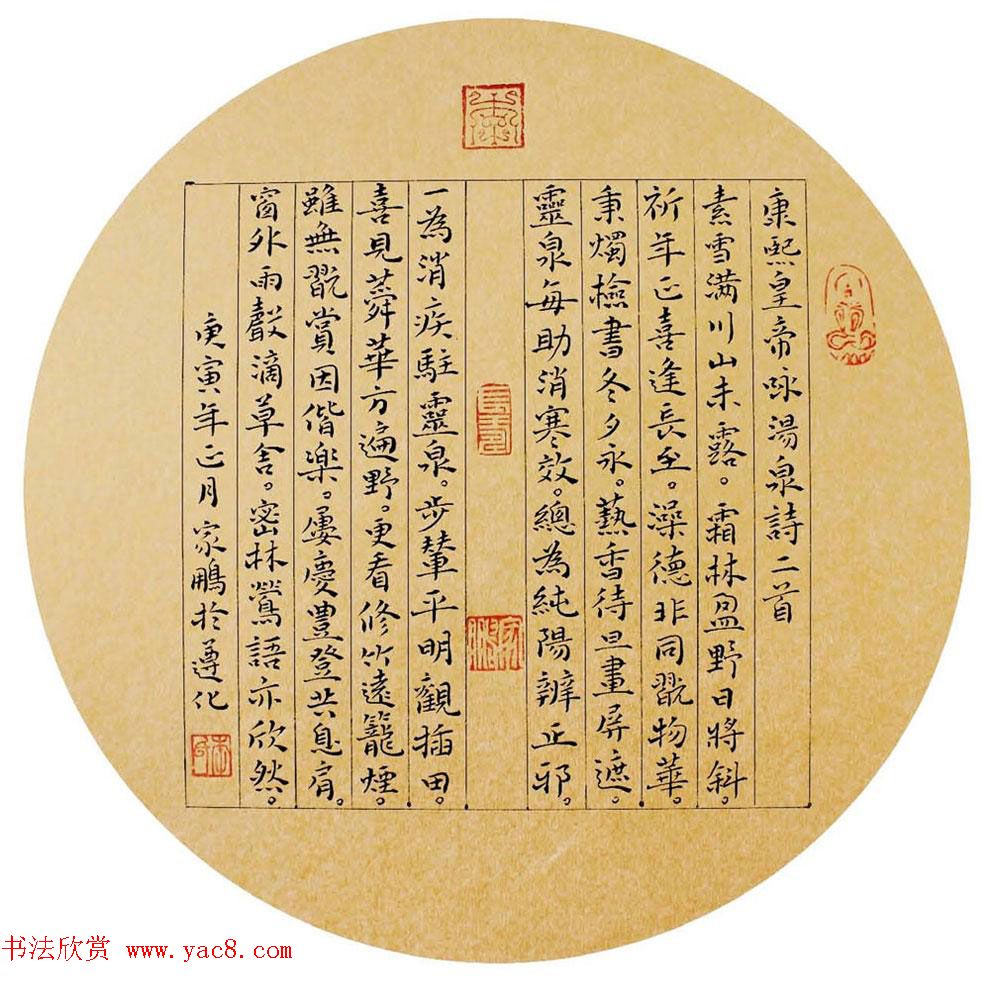 康熙皇帝咏湯泉詩二首
素雪满川山未露。霜林盈野日将斜。
祈年正喜逢長至。澡德非同翫物華。
秉燭檢書冬夕永。爇香待旦畫屏遮。
靈泉每助消寒效。總為純陽辨正邪。
一為消疾駐靈泉。步輦平明觀插田。
喜見蕣華方遍野。更看修竹遠籠煙。
雖無翫賞因偕楽。屢慶豊登共息肩。
窗外雨聲滴草舍。密林鶯語亦欣然。
庚寅年正月家鵬於遵化
书法欣赏 www.yac8.com